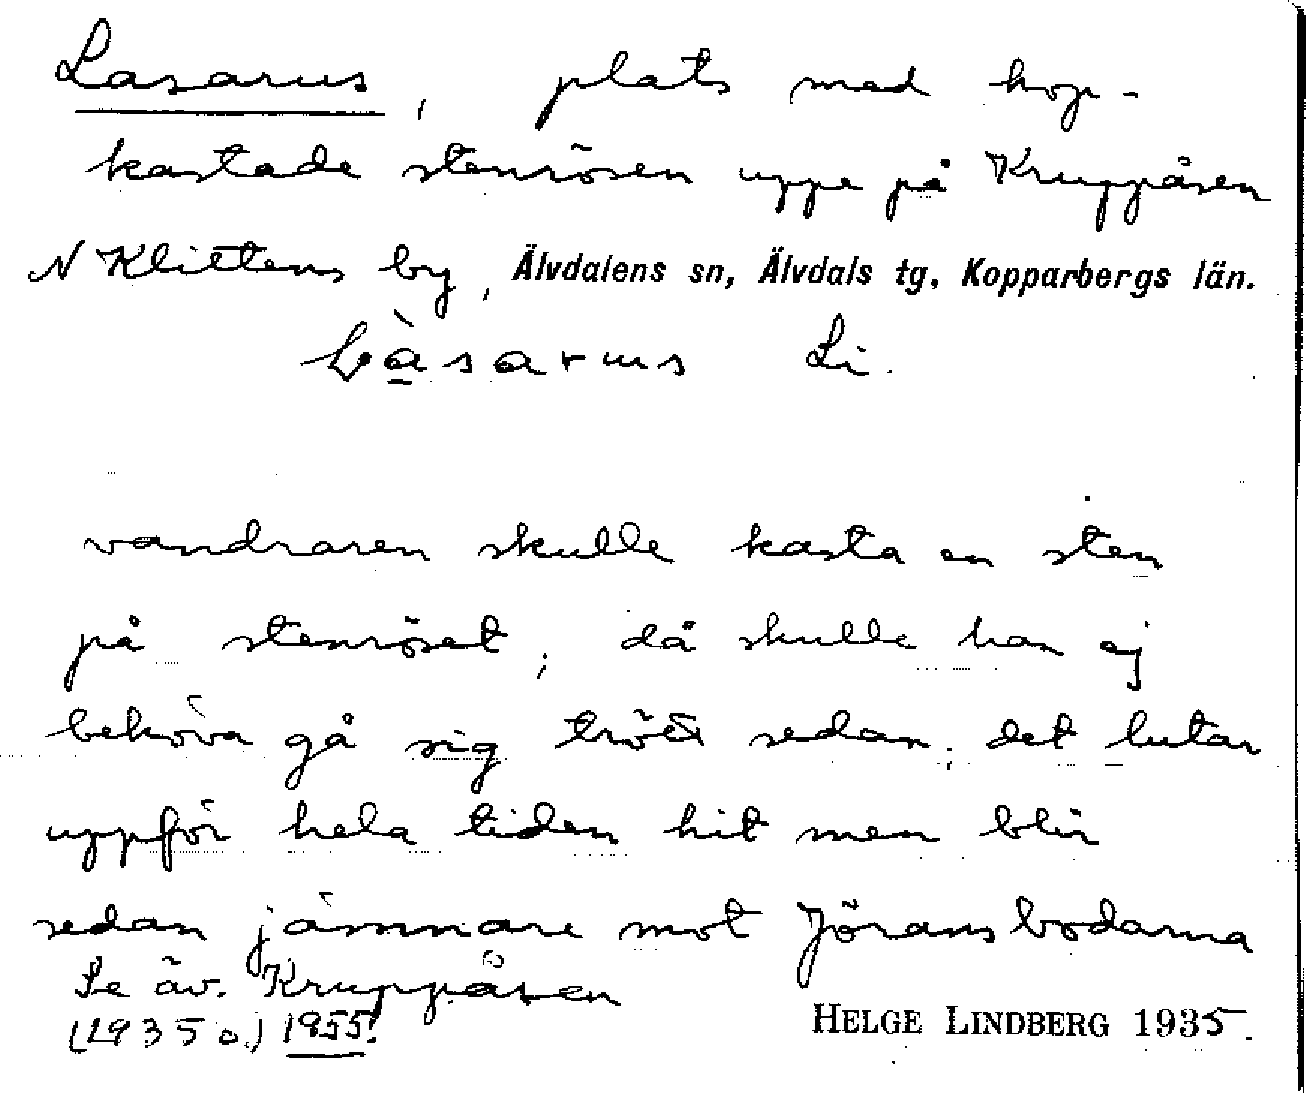 Lasarus, plats med hop-
kastade stenrösen uppe på Kruppåsen
N Klittens by, Älvdalens sn, Älvdals tg, Kopparbergs län.
Làsarus Li.
vandraren skulle kasta en sten
på stenröset, då skulle han ej
behöva gå sig trött sedan; det lutar
uppför hela tiden hit men blir
sedan jämnare mot Jöransbodarna
Se äv. Kruppåsen
(1935 o.) 1955!
HELGE LINDBERG 1935.